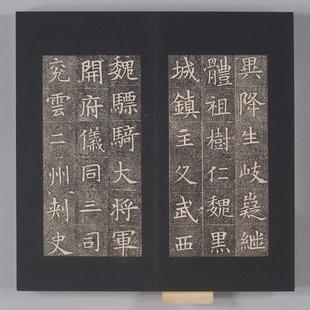 異降生岐嶷繼
體祖樹仁魏黑
城鎮主父武西
魏驃騎大将軍
開府儀同三司
兖雲二州刺史